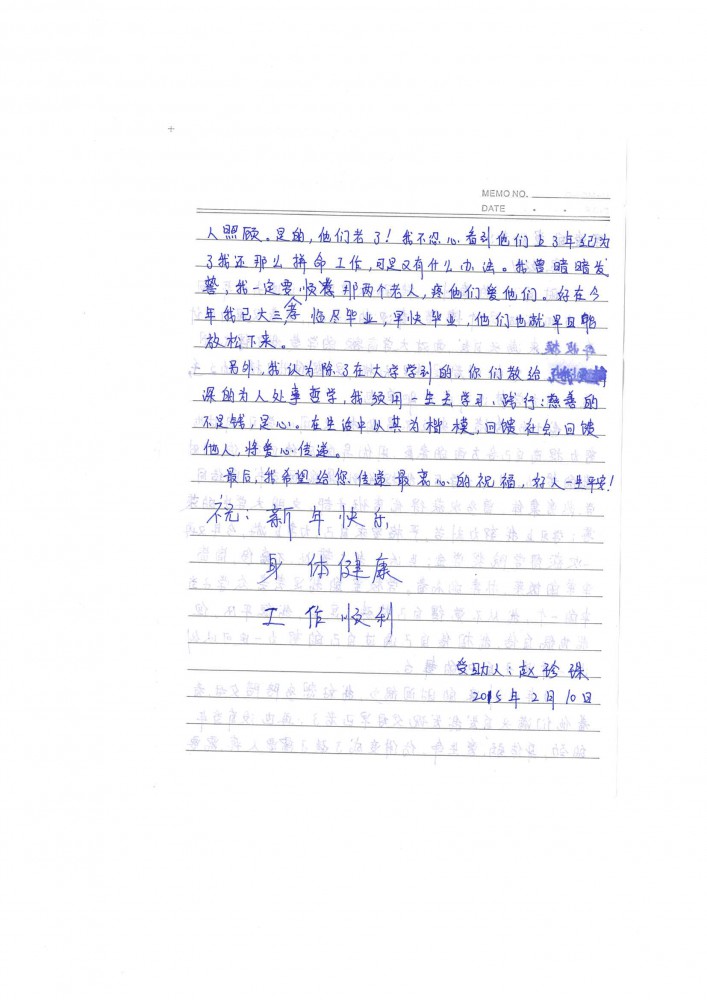 MEMO NO.
DATE - -
人照顾。是的，他们老了！我不忍心看到他们上了年纪为
了我还那么拼命工作，可是又有什么办法。我曾暗暗发
誓，我一定要孝顺那两个老人，疼他们爱他们。好在今
年我已大三，临尽毕业，早快毕业，他们也就早日能
放松下来。
另外，我认为除了在大学学到的，你们教给
深的为人处事哲学，我须用一生去学习、践行：慈善的
不是钱，是心。在生活中以其为楷模，回馈社会，回馈
他人，将爱心传递。
最后，我希望给您传递最衷心的祝福，好人一生平安！
祝：新年快乐
身体健康
工作顺利
受助人：赵珍珠
2015年2月10日